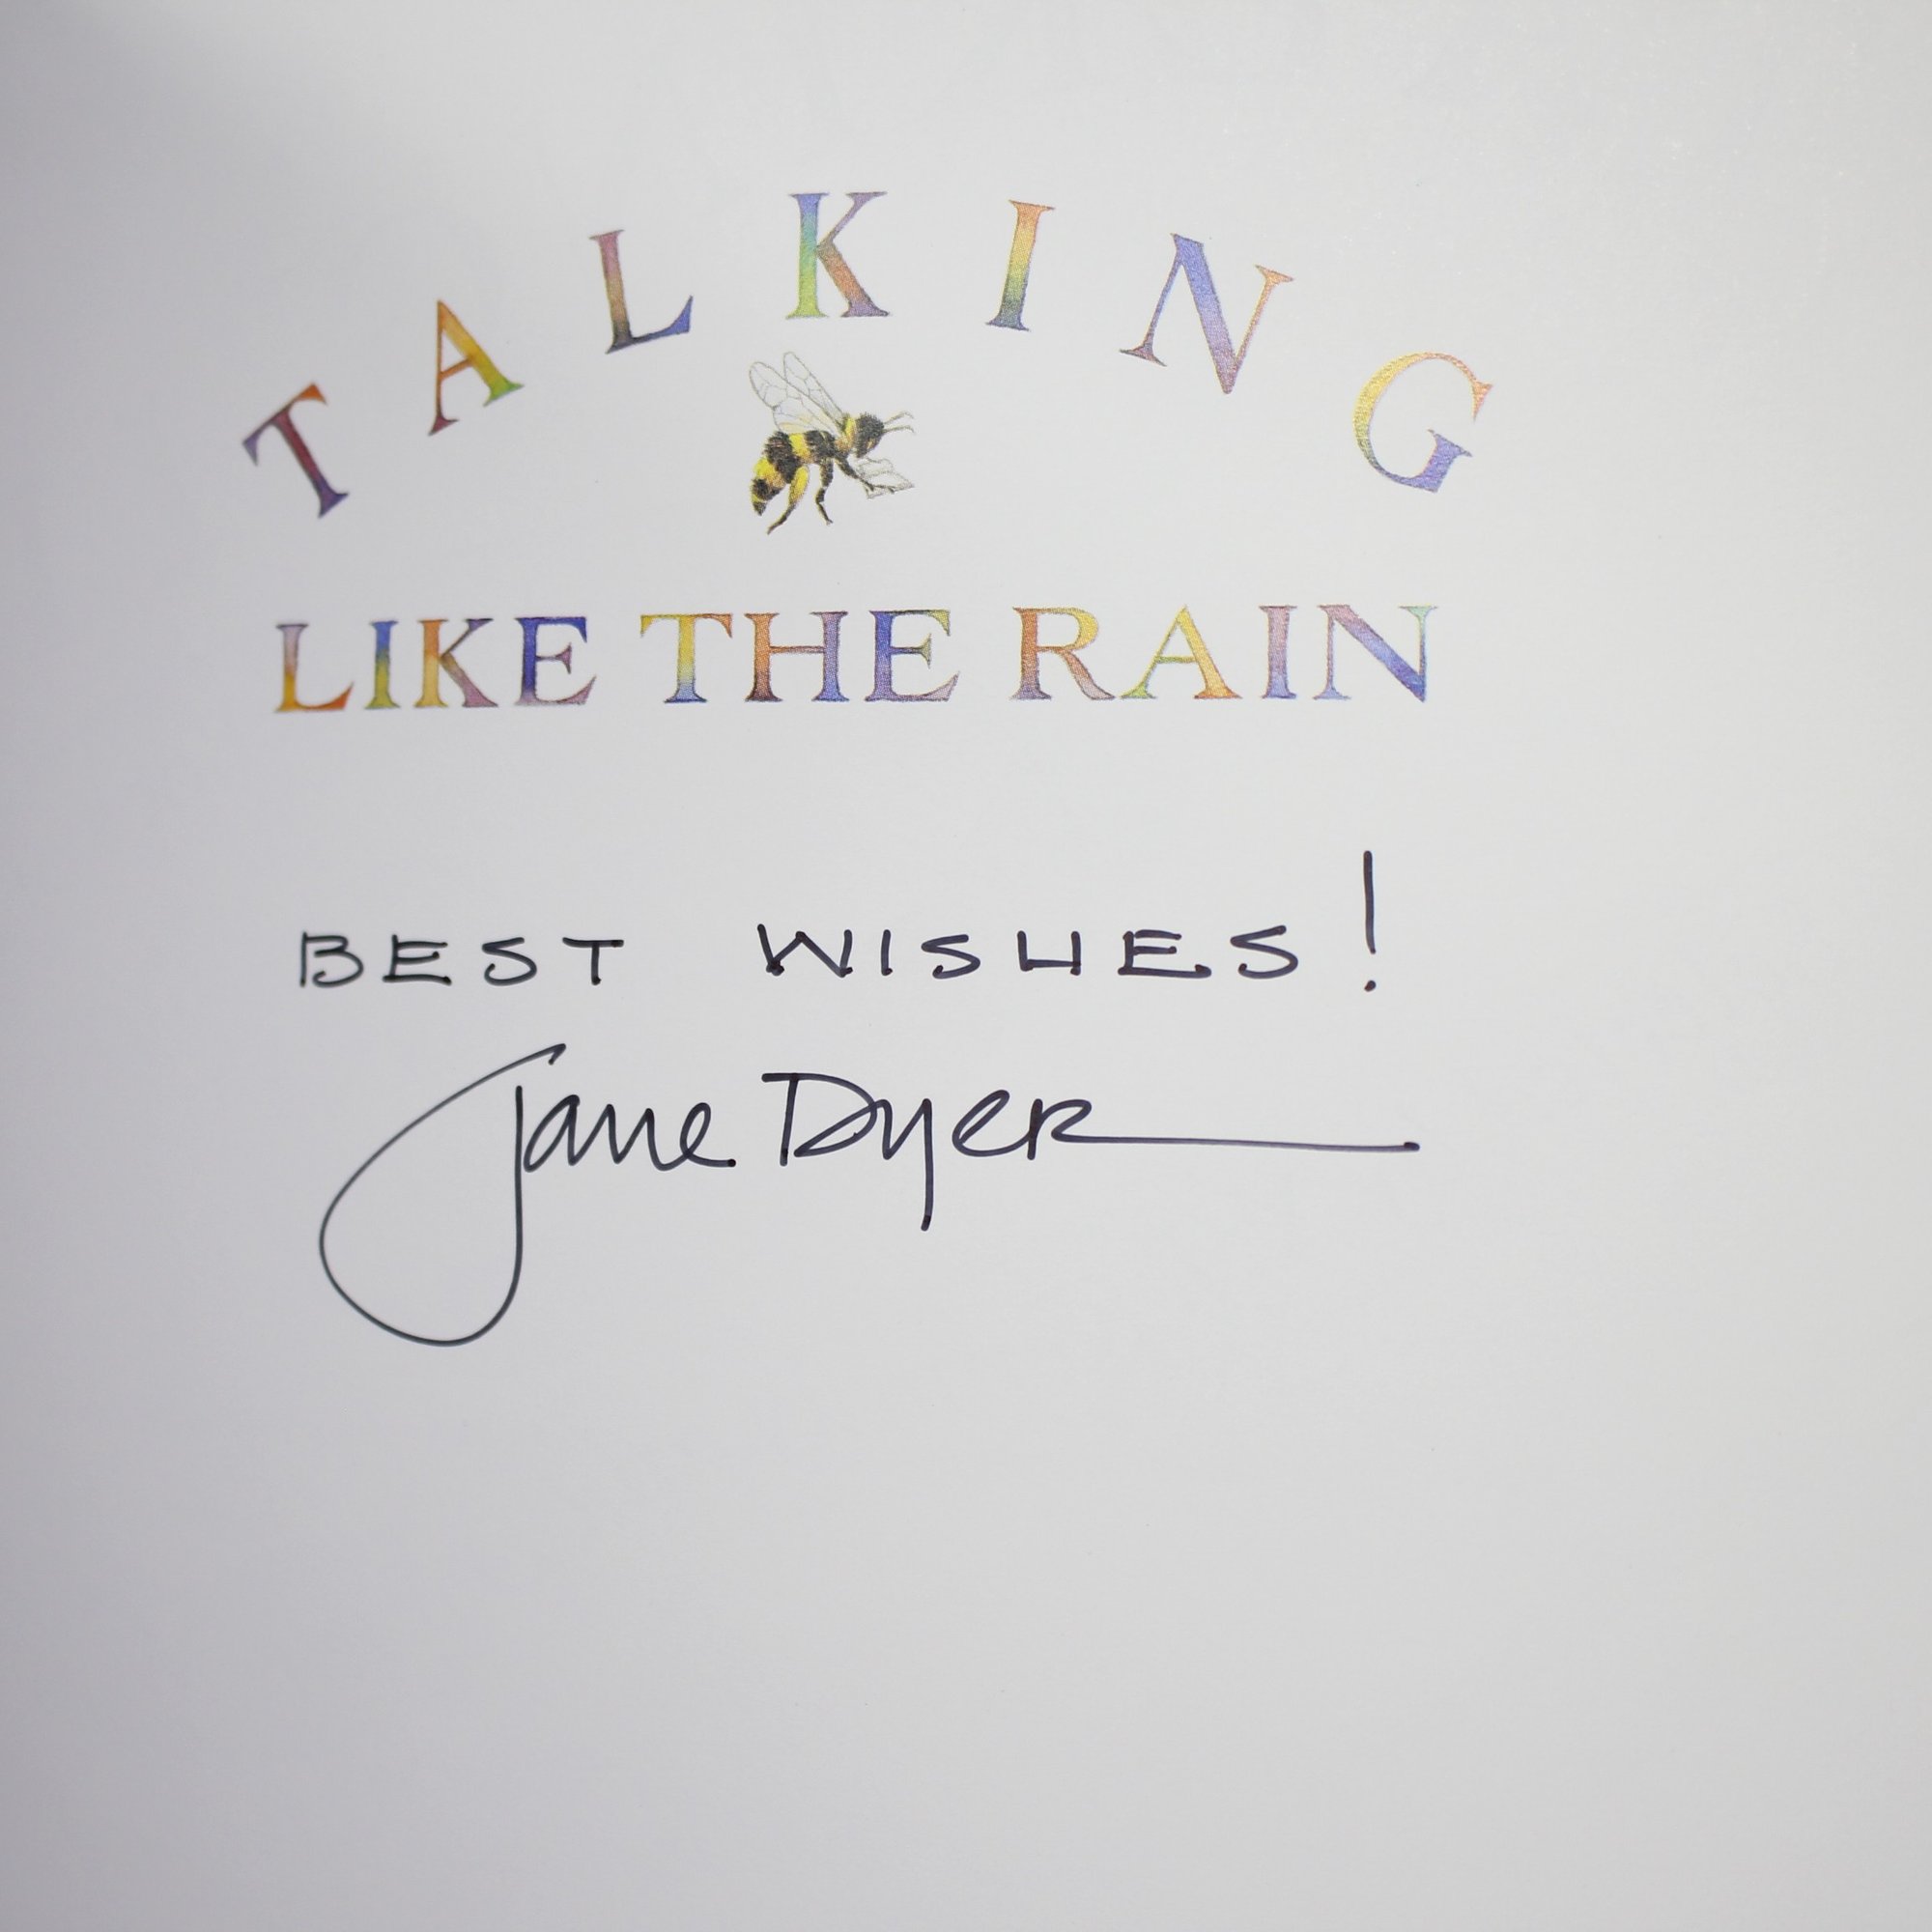 TALKING
LIKE THE RAIN
BEST WISHES!
Jane Dyer